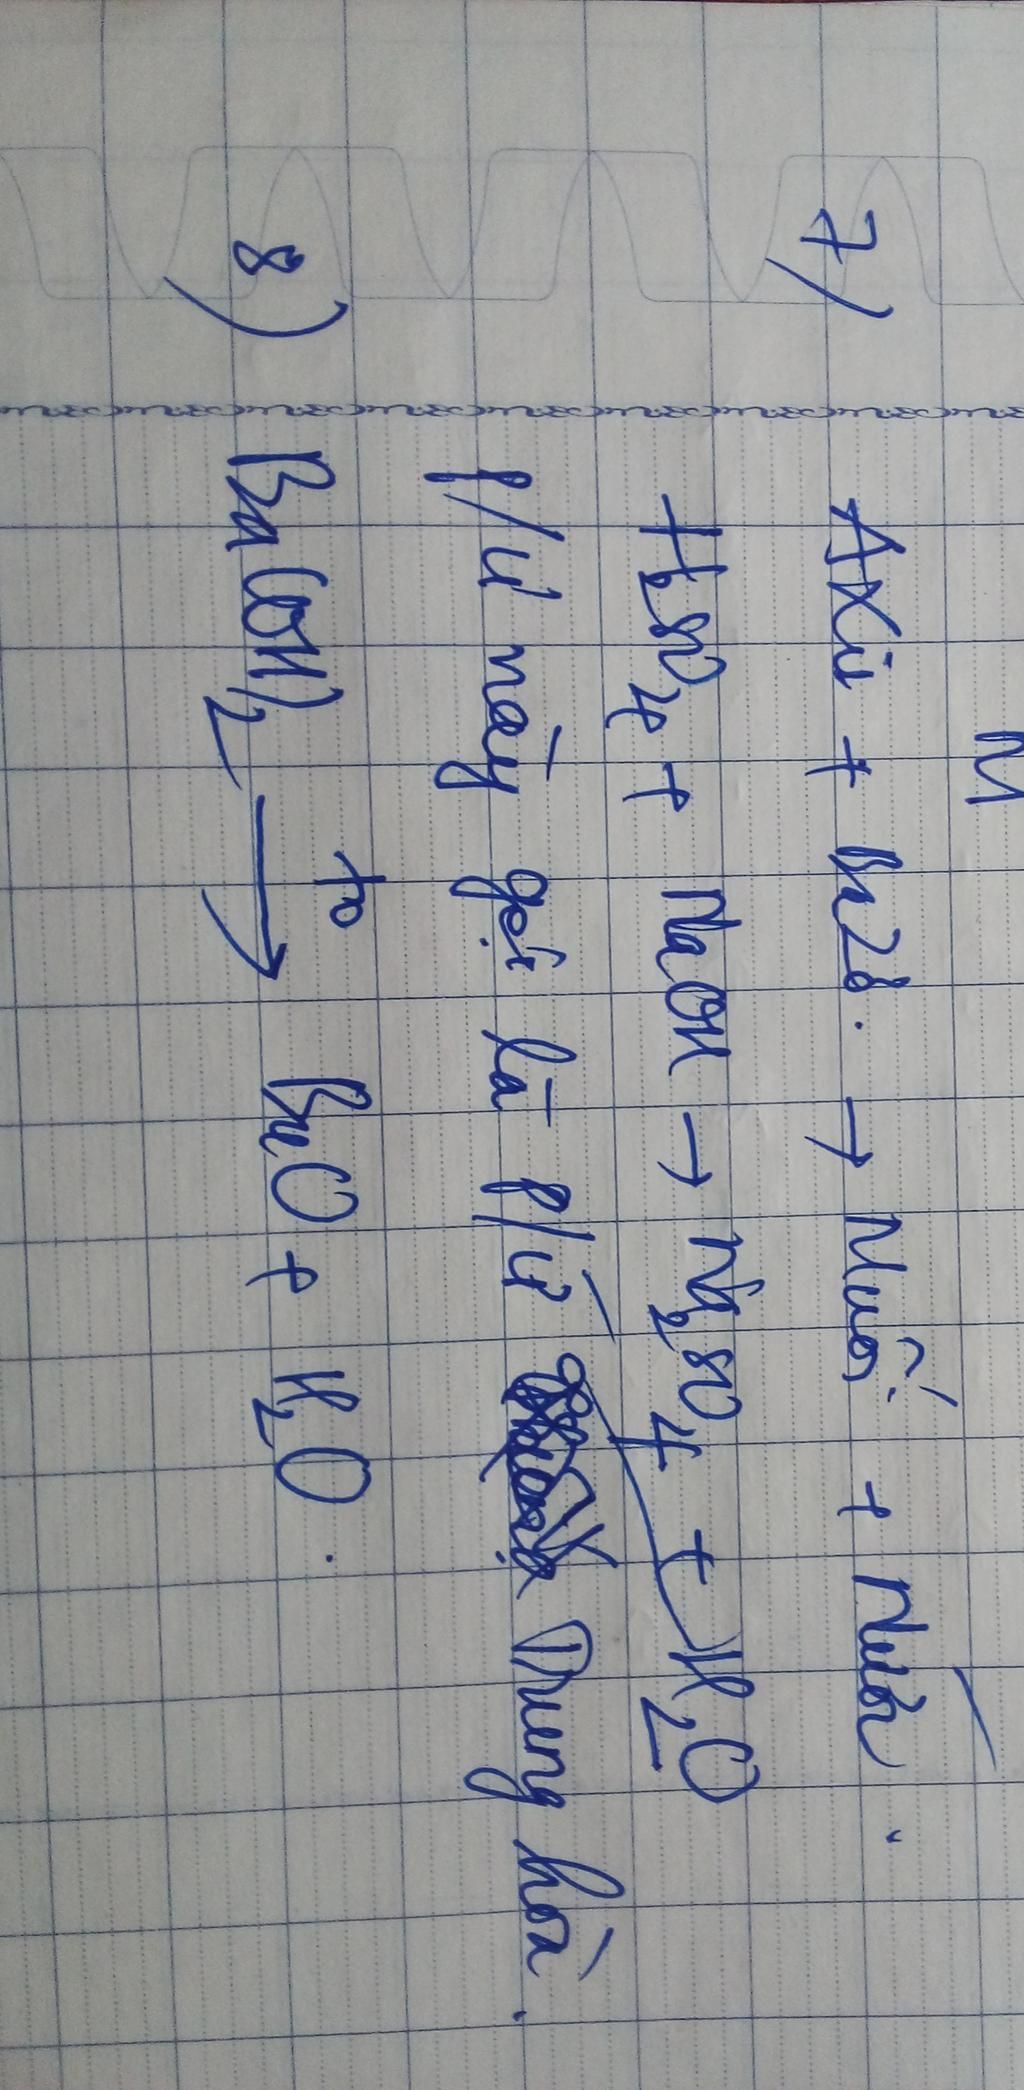 7/ Axit + Bazơ. → Muối + Nước.
H₂SO₄ + NaOH → Na₂SO₄ + H₂O
p/ứ này gọi là p/ứ Trung hoà.
8) Ba(OH)₂ →^{t⁰} BaO + H₂O.